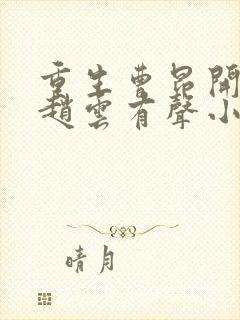 重生曹昂開
趙雲有聲小
晴月